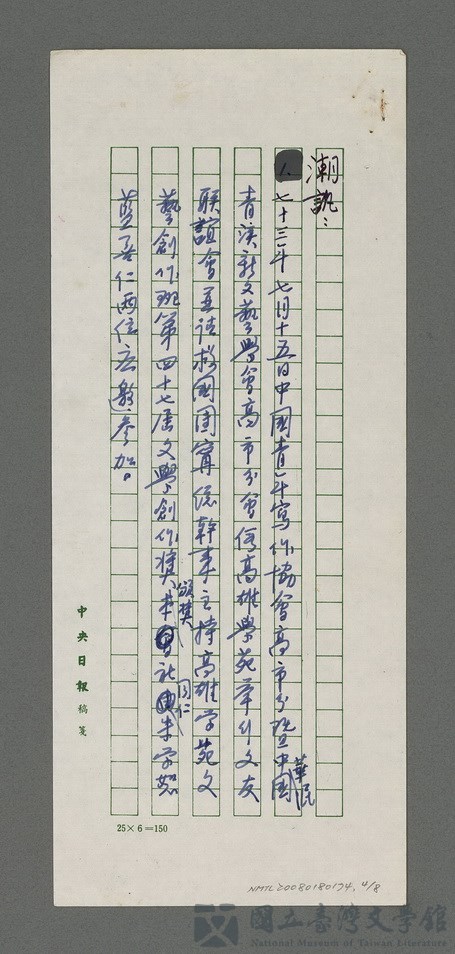 潮訊：
1. 七十三年七月十五日中國青年寫作協會高市分暨中國
華民
青溪新文藝學會高市分會假高雄學苑舉行文友
聯誼會並請救國團甯總幹事主持高雄学苑文
藝創作班第四十七届文學創作獎 社 朱学恕
頒獎
同仁
藍善仁兩位應邀參加。
中央日報稿箋
25×6=150
NMTL20080180174, 4/8
國立臺灣文學館
National Museum of Taiwan Literature